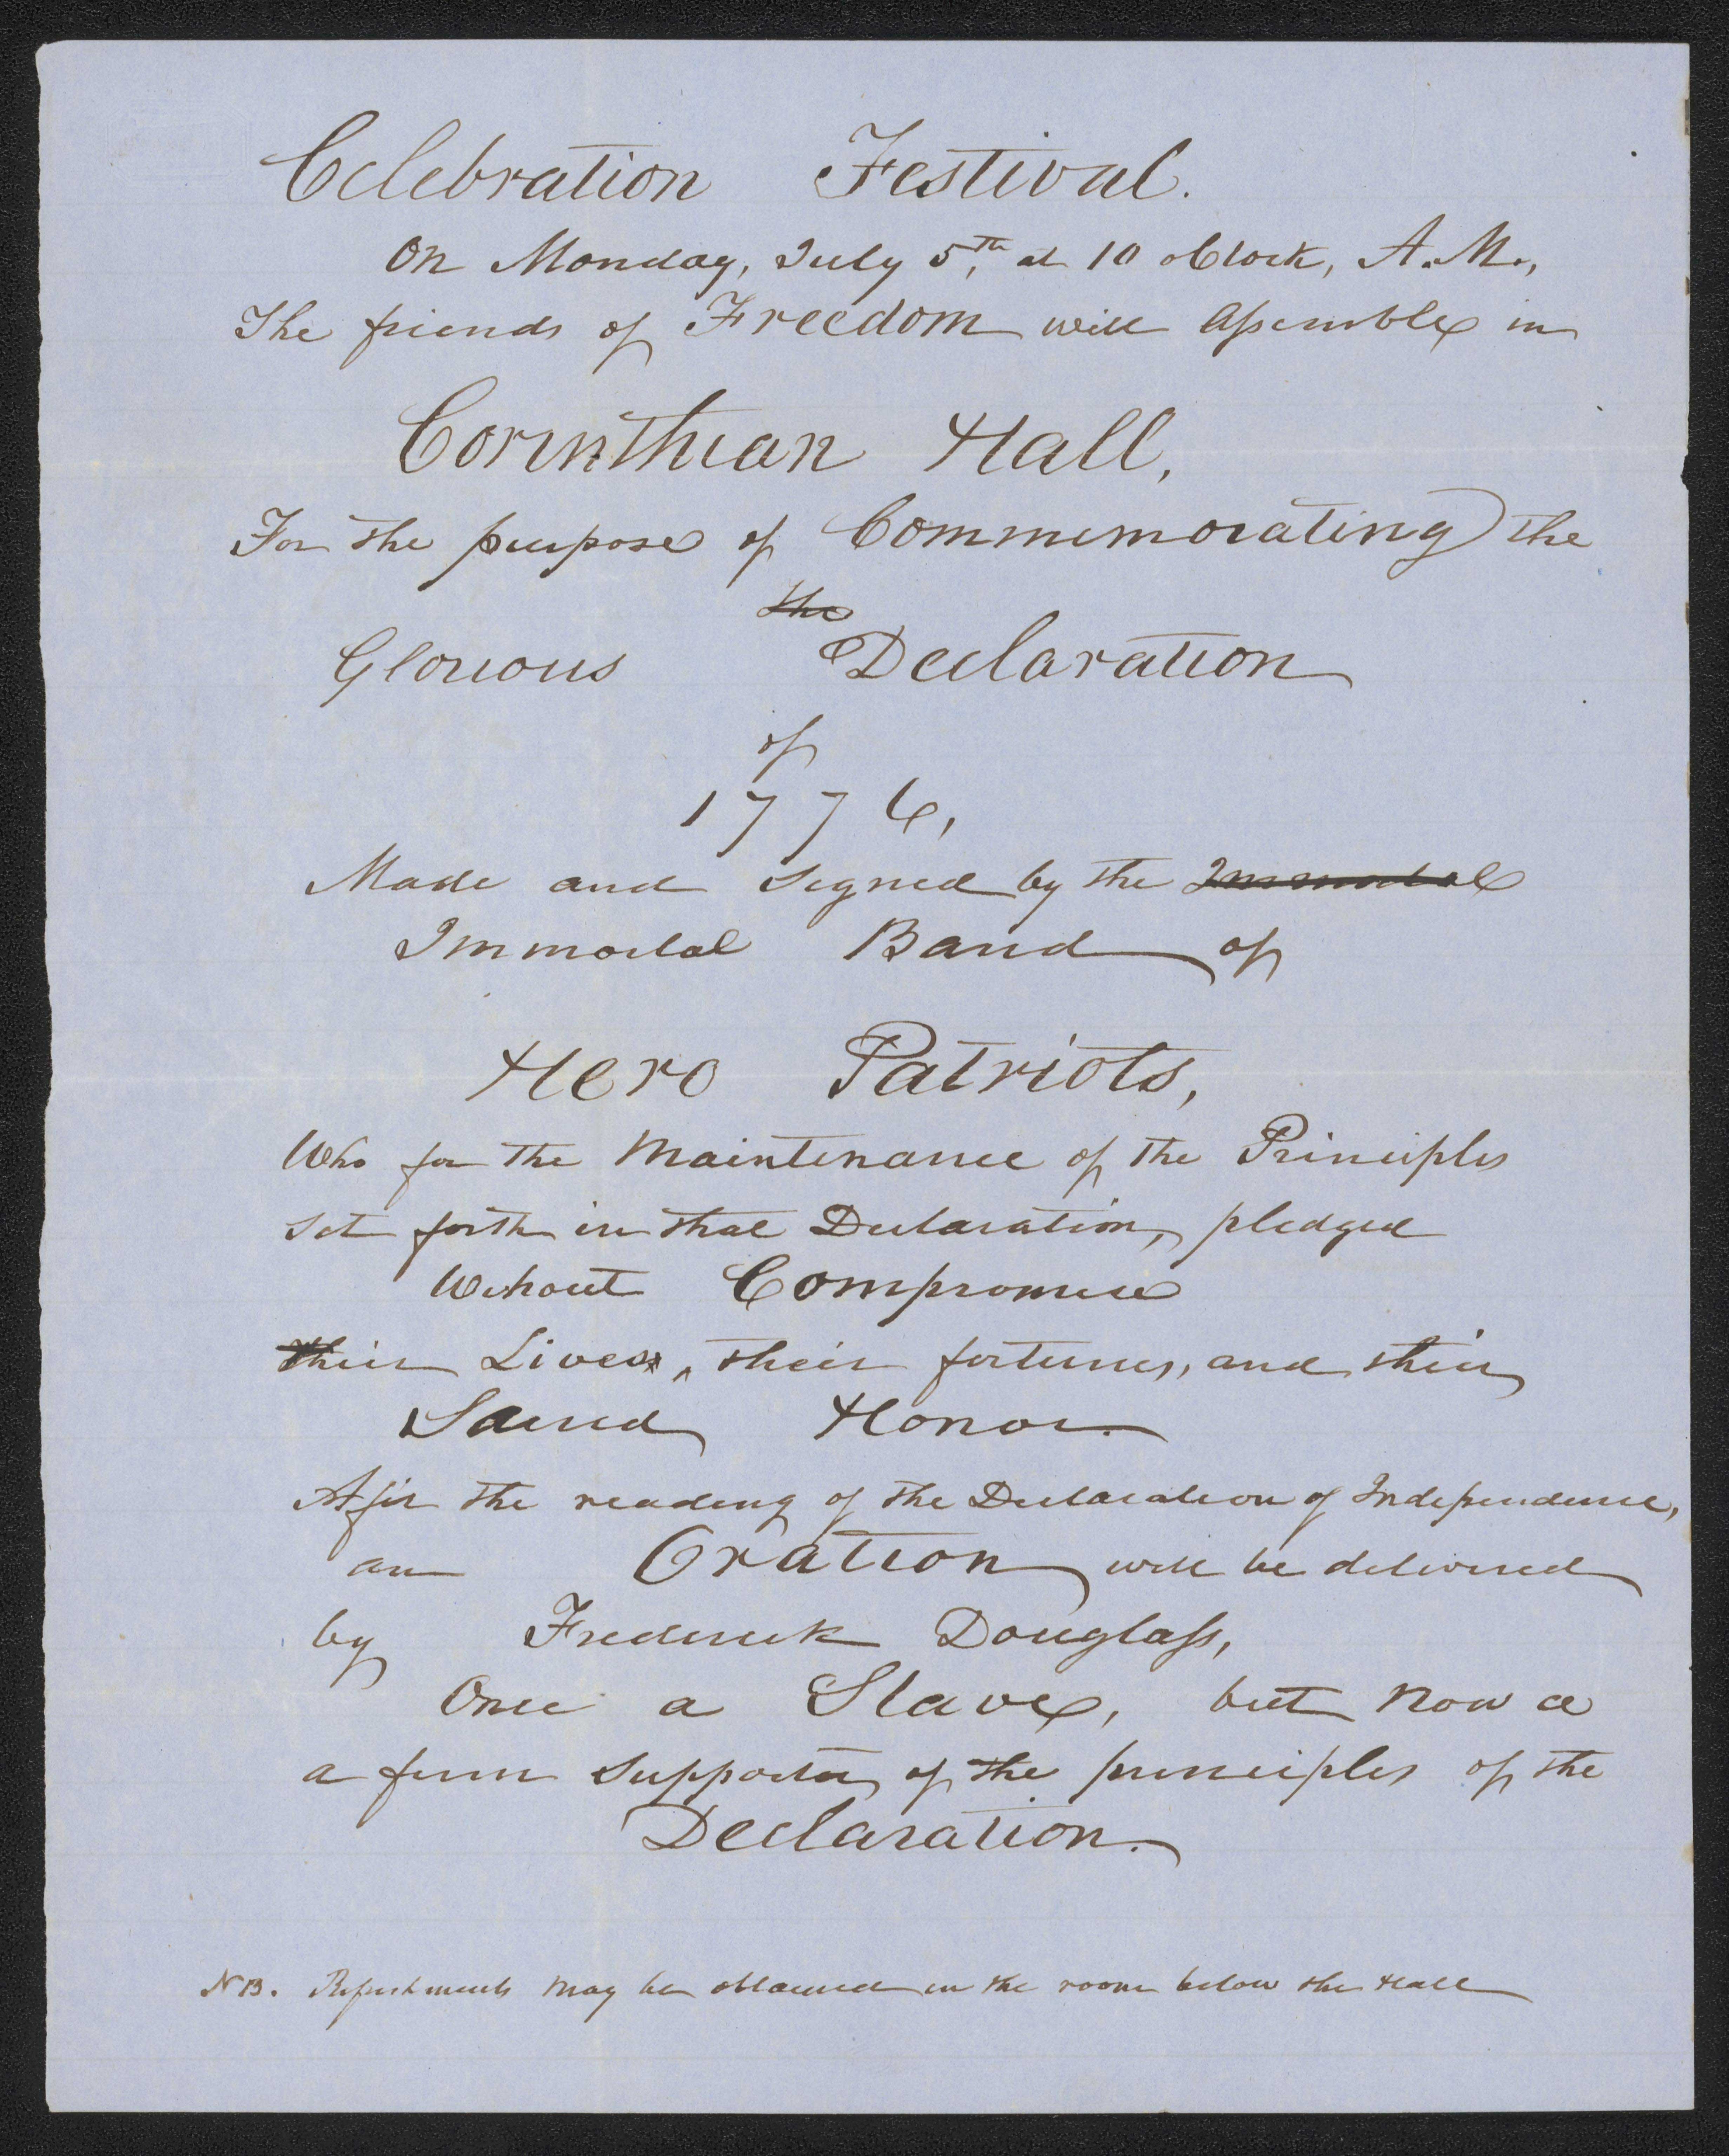 Celebration Festival.
On Monday, July 5th, at 10 oClock, A.M.,
The friends of Freedom will Assemble in
Corinthian Hall,
For the purpose of Commemorating the
the
Glorious Declaration
of
1776,
Made and signed by the Immortal
Immortal Band of
Hero Patriots,
Who for the Maintenance of the Principles
set forth in that Declaration, pledged
Without Compromise
their Lives, their fortunes, and their
Sacred Honor.
After the reading of the Declaration of Independence,
an Oration will be delivered
by Frederick Douglass,
Once a Slave, but now a
a firm supporter of the principles of the
Declaration.
NB. Refreshments may be obtained in the room below the Hall